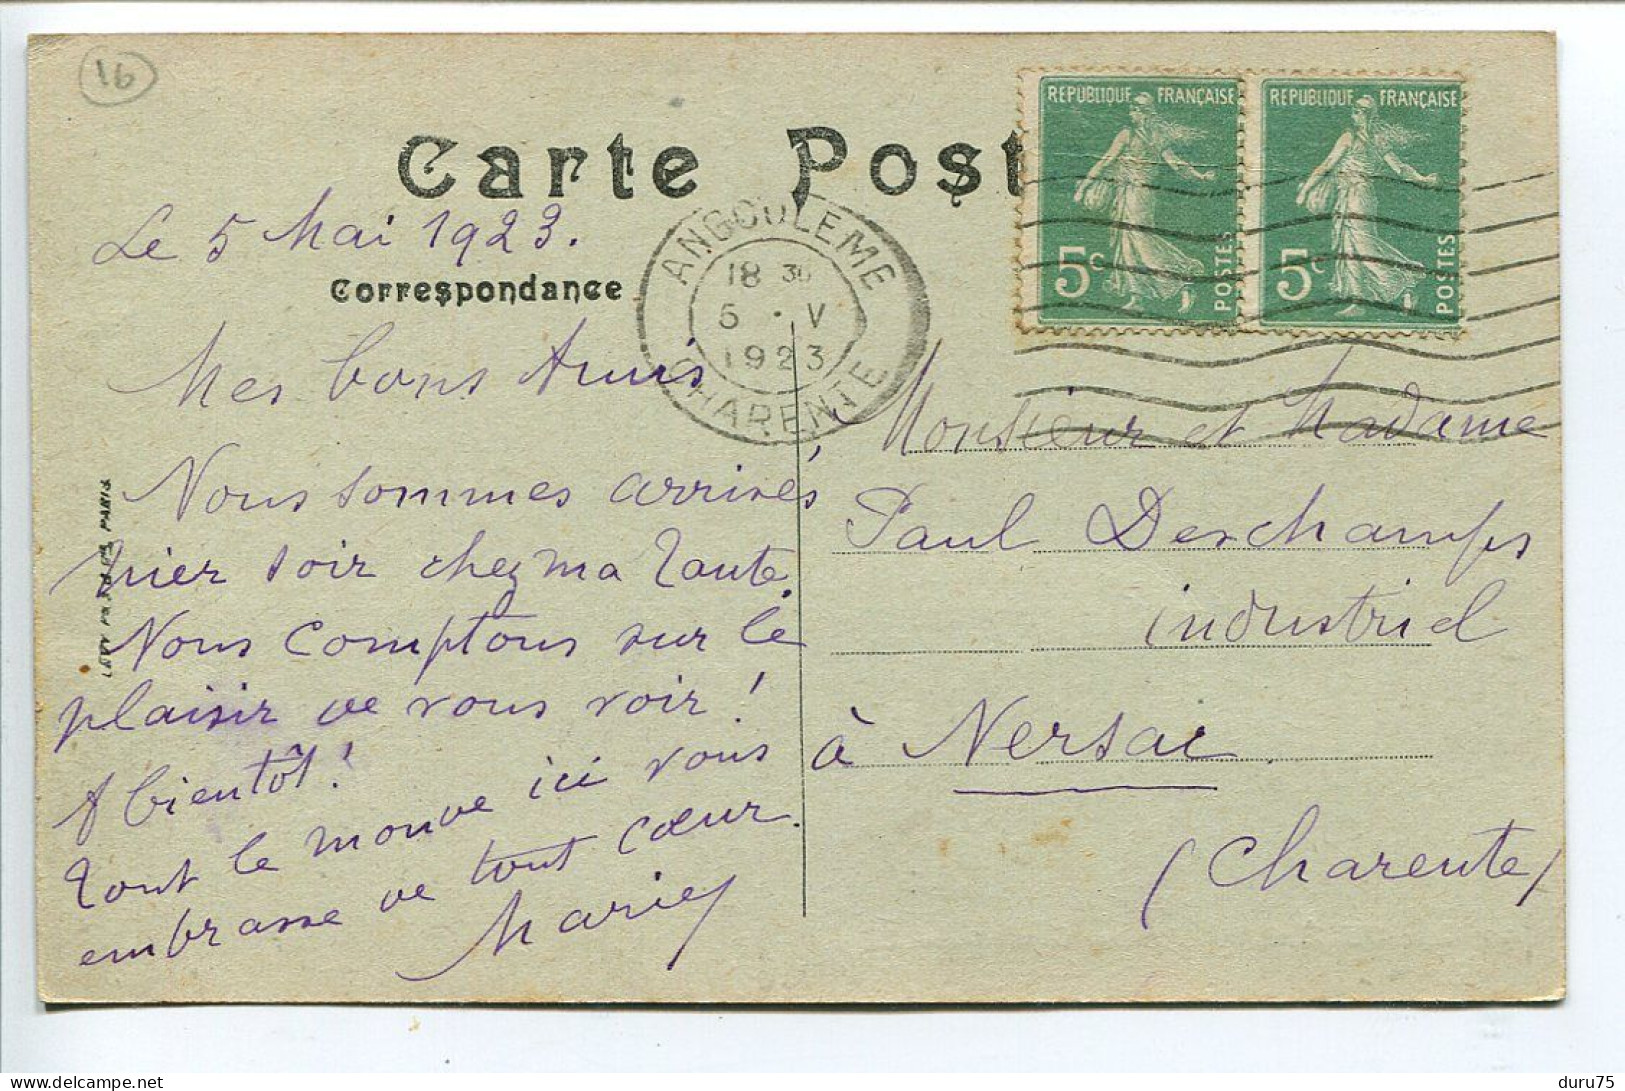 16
Carte Post
REPUBLIQUE FRANÇAISE
5c
POSTES
REPUBLIQUE FRANÇAISE
5c
POSTES
ANGOULEME
18 30
5 · V
1923
CHARENTE
Le 5 Mai 1923.
Correspondance
Mes bons Amis
Nous sommes arrivés
hier soir chez ma Tante.
Nous comptons sur le
plaisir de vous voir !
A bientôt !
Tout le monde ici vous
embrasse de tout cœur.
Marie
Monsieur et Madame
Paul Deschamps
industriel
à Nersac
(Charente)
delcampe.net
duru75